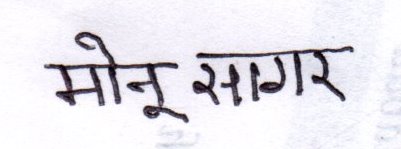 मोनू सागर